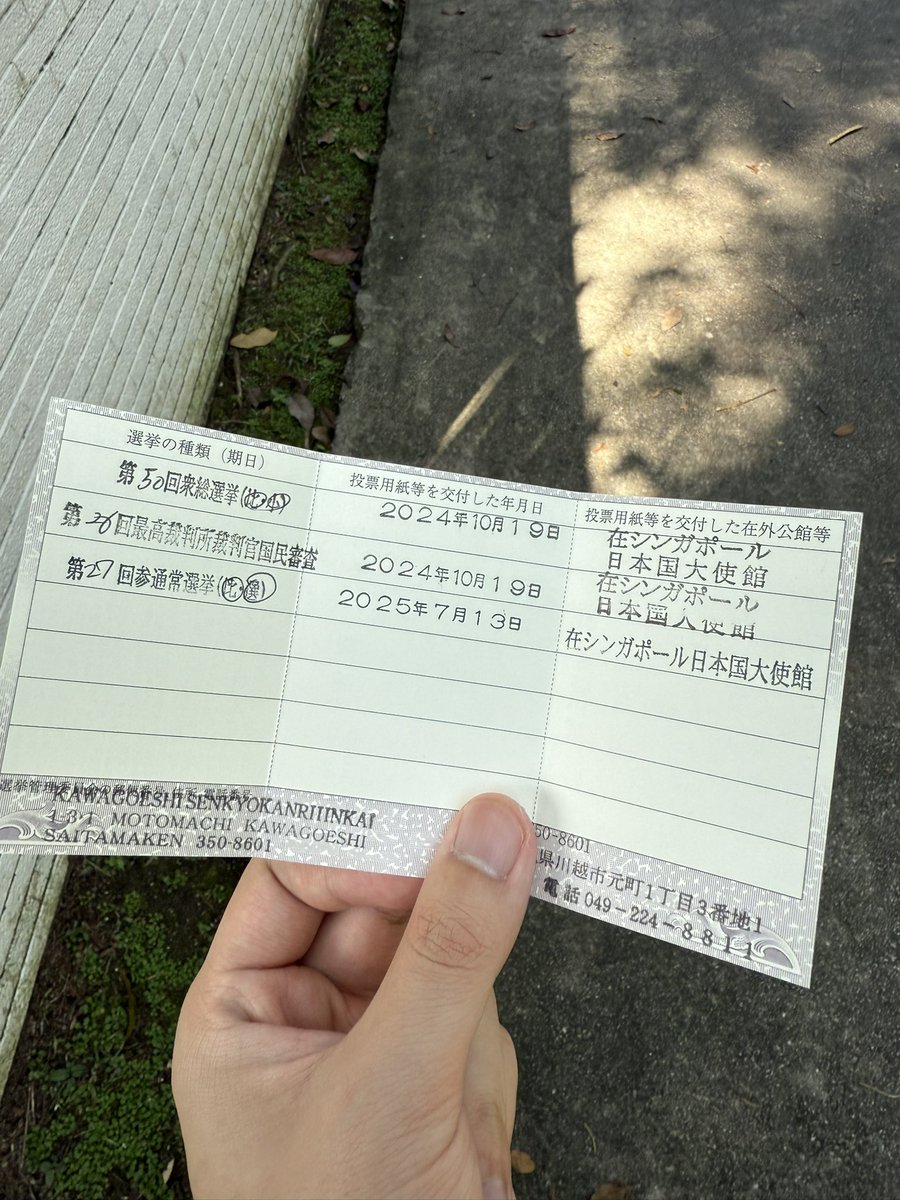 選挙の種類（期日）
投票用紙等を交付した年月日
投票用紙等を交付した在外公館等
第50回衆総選挙(比・小)
2024年10月19日
在シンガポール
日本国大使館
第26回最高裁判所裁判官国民審査
2024年10月19日
在シンガポール
日本国大使館
第27回参通常選挙(比・選)
2025年7月13日
在シンガポール日本国大使館
選挙管理委員会の
KAWAGOESHISENKYOKANRIIINKAI
1-3-1 MOTOMACHI KAWAGOESHI
SAITAMAKEN 350-8601
50-8601
県川越市元町1丁目3番地1
電話049-224-8811